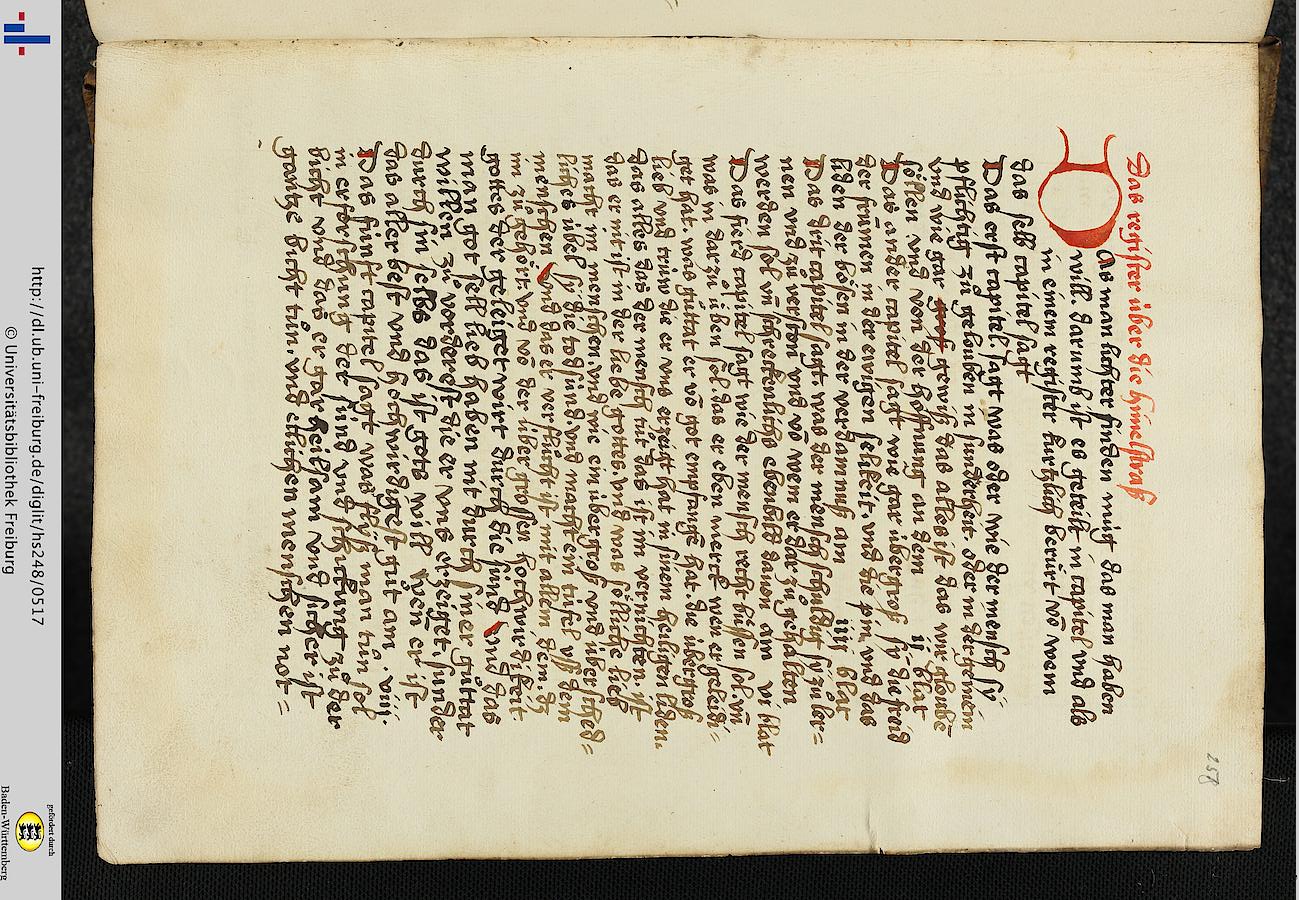 Das register über die himelstraß
DAs man lichter finden müg das man haben
will darumb ist es geteilt in capitel vnd als
in einem register kurtzlich berürt vō wem
das selb capitel sagt
Das erst capitel sagt was oder wie der mensch sÿ
pflichtig zů gelouben in sunderheit oder in der gemein
vnd wie gar groß gewiß das alles ist das wir gloubē
söllen vnd von der hoffnung an dem ij blat
Das ander capitel sagt wie gar übergroß sÿ die freid
der frūmen in der ewigen selikeit. vnd die pin vnd das
liden der bösen in der verdamnuß am iiij blat
Das drit capitel sagt. was der mensch schuldig sÿ zů ler=
nen vnd zů verston vnd vō wem er dar zů gehalten
werden sol vn̄ schreckenliche ebenbild dauon am vi blat
Das fierd capitel sagt wie der mensch recht büssen sol vn̄
was in dar zů üben sol das er eben merck wen er geleidi=
get hat was gůttat er vō got empfangē hat. die übergroß
lieb vnd trüw die er vns erzeigt hat in sinem heiligen liden.
das alles das der mensch tůt das ist im vernichten. ist
das er nit ist in der liebe gottes. vnd was söliche lieb
macht im menschen vnd wie ein übergroß vnd übersched=
lichs übel sÿ die todsünd. vnd macht ein tüfel vß dem
menschen vnd das er verflůcht ist mit allen dem. dz
im zů gehört vnd vō der über grossen hochwirdikeit
gottes der geleiget wirt durch die sünd vnd das
man got sell lieb haben nit durch siner gůttat
willen zů vorderest die er vns erzeiget. sunder
durch sin selbs das ist gots will wen er ist
das aller best vnd hochwirdigest gůt am. viij.
Das fünft capitel sagt was flÿß man tůn sol
in erforschung der sünd vnd schickung zů der
bicht vnd das er gar heilsam vnd sicher ist
gantze bicht tůn. vnd etlichen menschen not=
238
http://dl.ub.uni-freiburg.de/diglit/hs248/0517
© Universitätsbibliothek Freiburg
gefördert durch
Baden-Württemberg